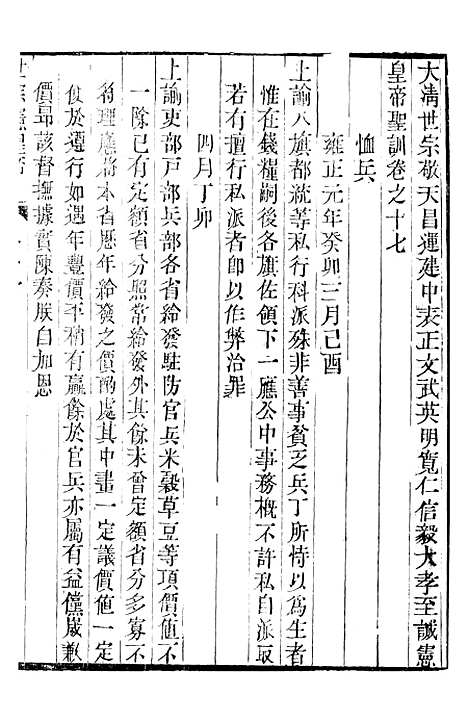 大清世宗敬天昌運建中表正文武英明寬仁信毅大孝至誠憲
皇帝聖訓卷之十七
恤兵
雍正元年癸卯三月己酉
上諭八旗都統等私行科派殊非善事貧乏兵丁所恃以爲生者
惟在錢糧嗣後各旗佐領下一應公中事務槪不許私自派取
若有擅行私派者即以作弊治罪
四月丁卯
上諭吏部戸部兵部各省給發駐防官兵米穀草豆等項價值不
一除已有定額省分照常給發外其餘未曾定額省分多寡不
將理應將本省歷年給發之價酌處其中畫一定議價值一定
便於遵行如遇年豐價平稍有贏餘於官兵亦屬有益儻歲歉
價昻該督撫據實陳奏朕自加恩